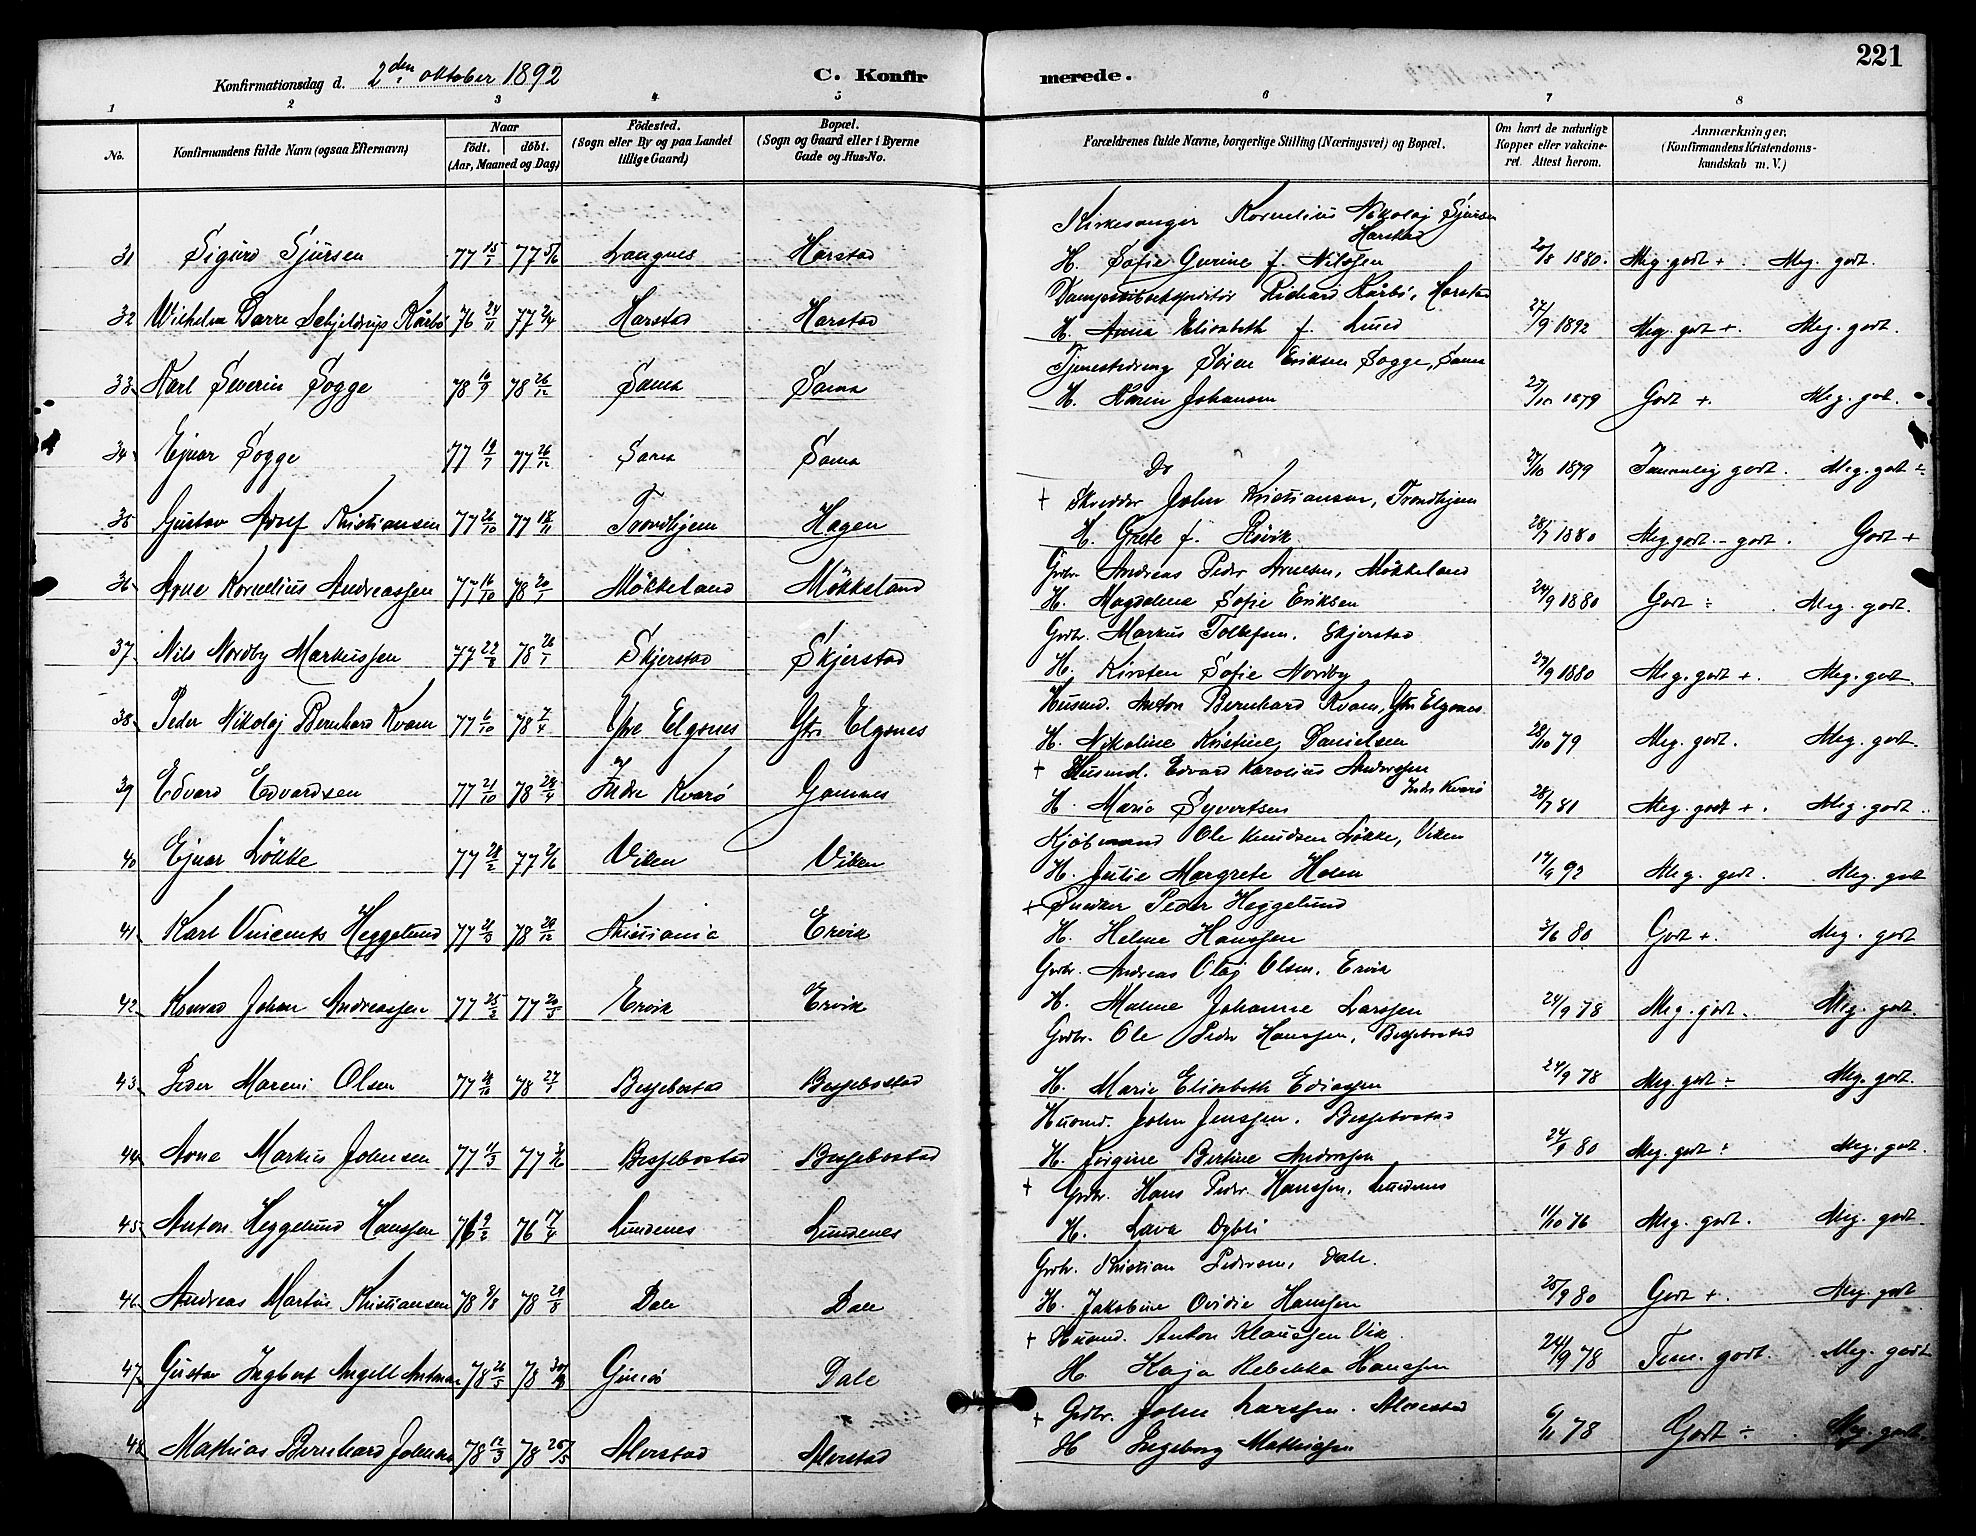 221
Konfirmationsdag d. 2den oktober 1892
C. Konfirmerede.
1 2 3 4 5 6 7 8
No. Konfirmandens fulde Navn (ogsaa Efternavn) Naar født. døbt. (Aar, Maaned og Dag) Fødested. (Sogn eller By og paa Landet tillige Gaard) Bopæl. (Sogn og Gaard eller i Byerne Gade og Hus-No. Forældrenes fulde Navne, borgerlige Stilling (Næringsvei) og Bopæl. Om havt de naturlige Kopper eller vakcineret. Attest herom. Anmærkninger. (Konfirmandens Kristendomskundskab m. V.)
Kirkesanger Kornelius Nikolaj Sjursen Harstad
31 Sigurd Sjursen 77 15/1 77 5/6 Langnes Harstad H. Sofie Gurine f. Nilssen 20/8 1880. Meg. godt + . Meg. godt.
Richard Kårbö, Harstad
32 Wilhelm Darre Schjeldrup Kårbö 76 24/11 77 2/4 Harstad Harstad H. Anna Elisabeth f. Lund 27/9 1892 Meg. godt +. Meg. godt.
Tjenestedreng Sören Eriksen Sogge, Sama
33 Karl Severin Sogge 78 10/9 78 26/12 Sama Sama H. Karen Johansen 27/10 1879 Godt +. Meg. godt.
34 Ejnar Sogge 77 19/7 77 26/12 Sama Sama Do 27/10 1879 Temmelig godt. Meg. godt ÷
+ Skredder John Kristiansen, Trondhjem
35 Gustav Adolf Kristiansen 77 26/10 77 18/11 Trondhjem Hagen H. Grete f. Rövik 28/7 1880 Meg godt - godt. Godt +
Grdbr. Andreas Peder Arnesen, Mökkeland
36 Arne Kornelius Andreassen 77 16/10 78 20/1 Mökkeland Mökkeland H. Magdalena Sofie Eriksen 24/9 1880 Godt ÷ Meg. godt.
Grdbr. Markus Tollefsen, Skjerstad
37 Nils Nordby Markussen 77 22/8 78 26/1 Skjerstad Skjerstad H. Kirsten Sofie Nordby 27/9 1880 Meg. godt +. Meg. godt.
Husmd. Anton Bernhard Kvam, Ytre Elgsnes
38 Peder Nikolaj Bernhard Kvam 77 6/10 78 7/4 Ytre Elgsnes Ytre Elgsnes H. Nikoline Kristine Danielsen 28/10 79 Meg. godt. Meg. godt.
+ Husmd. Edvard Karolius Anderssen Indre Kvarö
39 Edvard Edvardsen 77 21/10 78 28/4 Indre Kvarö Gamnes H. Marie Syvertsen 28/7 81 Meg. godt +. Meg. godt.
Kjöbmand Ole Knudsen Lökke, Viken
40 Ejnar Lökke 77 28/2 77 2/6 Viken Viken H. Julie Margrete Holm 14/9 92 Meg. godt. Meg. godt
+ Snedker Peder Heggelund
41 Karl Vincents Heggelund 77 21/3 78 29/12 Kristiania Ervik H. Helene Hanssen 3/6 80 Godt +. Meg. godt
Grdbr. Andreas Olaj Olsen, Ervik
42 Konrad Johan Andreassen 77 25/2 77 20/5 Ervik Ervik H. Malene Johanne Larssen 24/9 78 Meg. godt. Meg. godt.
Grdbr. Ole Peder Hanssen, Bessebostad
43 Peder Mareni Olsen 77 28/10 78 27/1 Bessebostad Bessebostad H. Marie Elisabeth Ediassen 24/9 78 Meg. godt ÷ Meg. godt.
Husmd. John Jenssen, Bessebostad
44 Arne Markus Johnsen 77 11/3 77 3/6 Bessebostad Bessebostad H. Jörgine Bertine Anderssen 24/9 80 Meg. godt ÷ Meg. godt.
+ Grdbr. Hans Peder Hanssen, Lundenes
45 Anton Heggelund Hanssen 76 9/2 76 17/4 Lundenes Lundenes H. Lava Dybli 11/10 76 Meg. godt. Meg. godt.
Grdbr. Kristian Pedersen, Dale.
46 Andreas Martin Kristiansen 78 3/8 78 29/8 Dale Dale H. Jakobine Ovidie Hanssen 25/9 80 Godt +. Meg. godt
+ Husmd. Anton Klaussen Vik
47 Gustav Ingbert Angell Antonsen 78 26/5 78 Gimsö Dale H Kaja Rebekka Hanssen 24/9 78 Tem. godt. Meg. godt
+ Grdbr. John Larssen. Alvestad
48 Mathias Bernhard Johnsen 78 12/3 78 26/5 Alvestad Alvestad H Ingeborg Mathiassen 6/11 78 Godt ÷. Meg. godt.